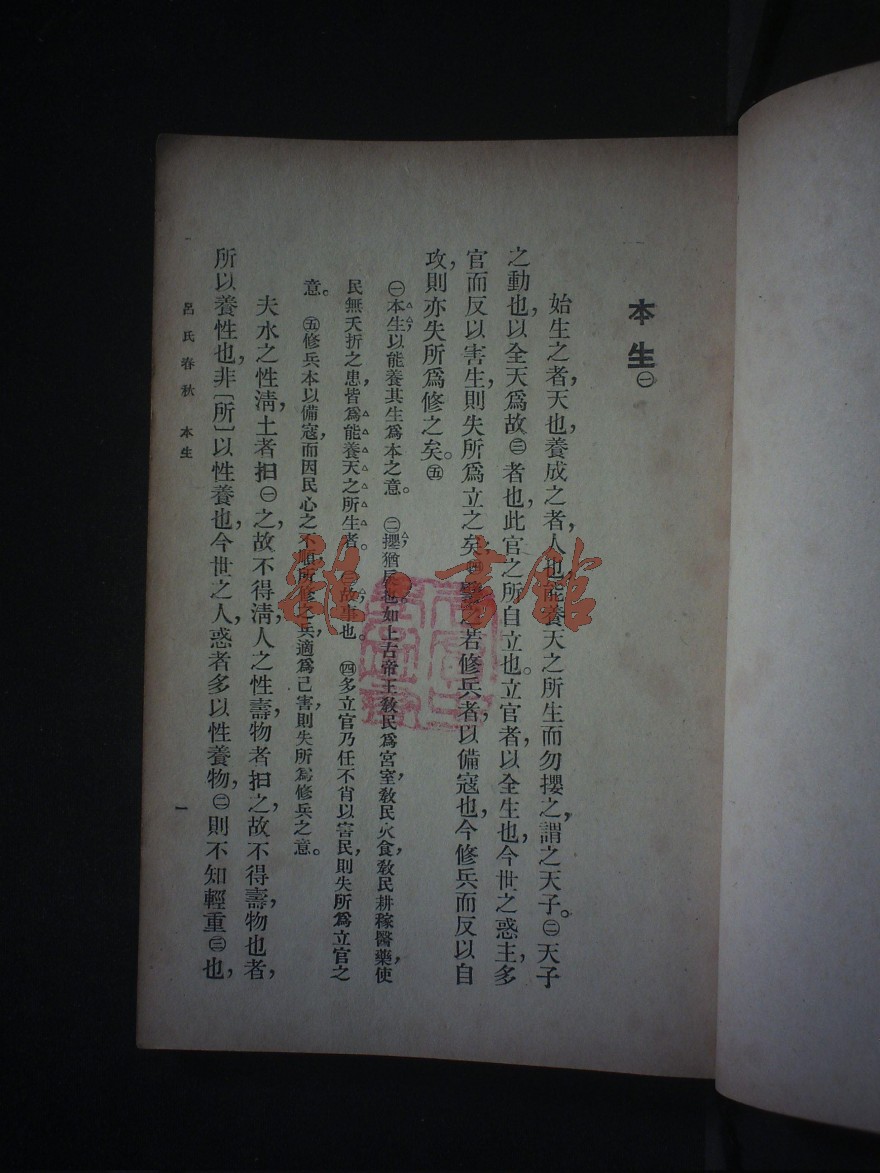 本生㊀
始生之者，天也，養成之者，人也，能養天之所生而勿攖之，謂之天子。㊁天子
之動也，以全天爲故㊂者也，此官之所自立也。立官者，以全生也，今世之惑主，多
官而反以害生，則失所爲立之矣。㊃譬之若修兵者，以備寇也，今修兵而反以自
攻，則亦失所爲修之矣。㊄
㊀本生，以能養其生爲本之意。　㊁攖，猶戾也。如上古帝王敎民爲宮室，敎民火食，敎民耕稼醫藥，使
民無夭折之患，皆爲能養天之所生者。　㊂故，事也。　㊃多立官乃任不肖以害民，則失所爲立官之
意。　㊄修兵本以備寇，而因民心之不順，所修之兵，適爲己害，則失所爲修兵之意。
夫水之性淸，土者抇㊀之，故不得淸，人之性壽，物者抇之，故不得壽，物也者，
所以養性也，非〔所〕以性養也，今世之人，惑者多以性養物，㊁則不知輕重㊂也，
呂氏春秋　本生
一
雜·書館